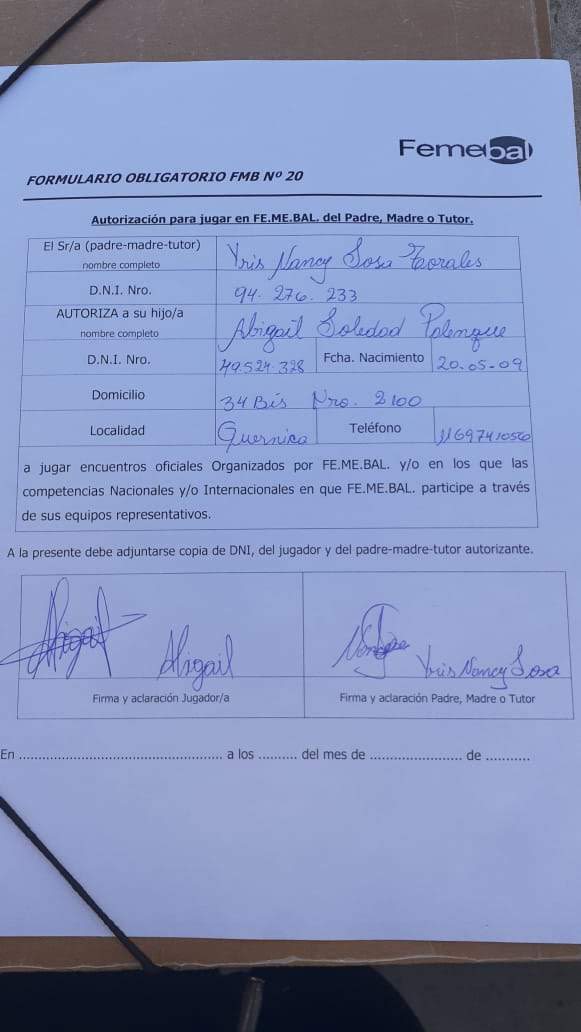 Femebal
FORMULARIO OBLIGATORIO FMB Nº 20
Autorización para jugar en FE.ME.BAL. del Padre, Madre o Tutor.
El Sr/a (padre-madre-tutor)
nombre completo
Yris Nancy Sosa Torales
D.N.I. Nro. 94.276.233
AUTORIZA a su hijo/a
nombre completo
Abigail Soledad Palenque
D.N.I. Nro. 49.524.328 Fcha. Nacimiento 20.05-09
Domicilio 34 Bis Nro. 2100
Localidad Guernica Teléfono 1169741056
a jugar encuentros oficiales Organizados por FE.ME.BAL. y/o en los que las
competencias Nacionales y/o Internacionales en que FE.ME.BAL. participe a través
de sus equipos representativos.
A la presente debe adjuntarse copia de DNI, del jugador y del padre-madre-tutor autorizante.
Abigail Abigail Yris Nancy Sosa
Firma y aclaración Jugador/a Firma y aclaración Padre, Madre o Tutor
En ............................................... a los .......... del mes de ....................... de ...........